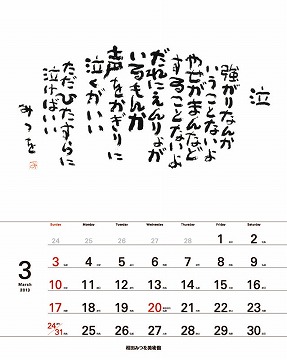 泣
強がりなんか
いうことないよ
やせがまんなど
することないよ
だれにえんりょが
いるもんか
声をかぎりに
泣くがいい
ただひたすらに
泣けばいい
みつを
3
March
2013
Sunday Monday Tuesday Wednesday Thursday Friday Saturday
24 25 26 27 28 1 2
3 4 5 6 7 8 9
10 11 12 13 14 15 16
17 18 19 20 21 22 23
24/31 25 26 27 28 29 30
相田みつを美術館